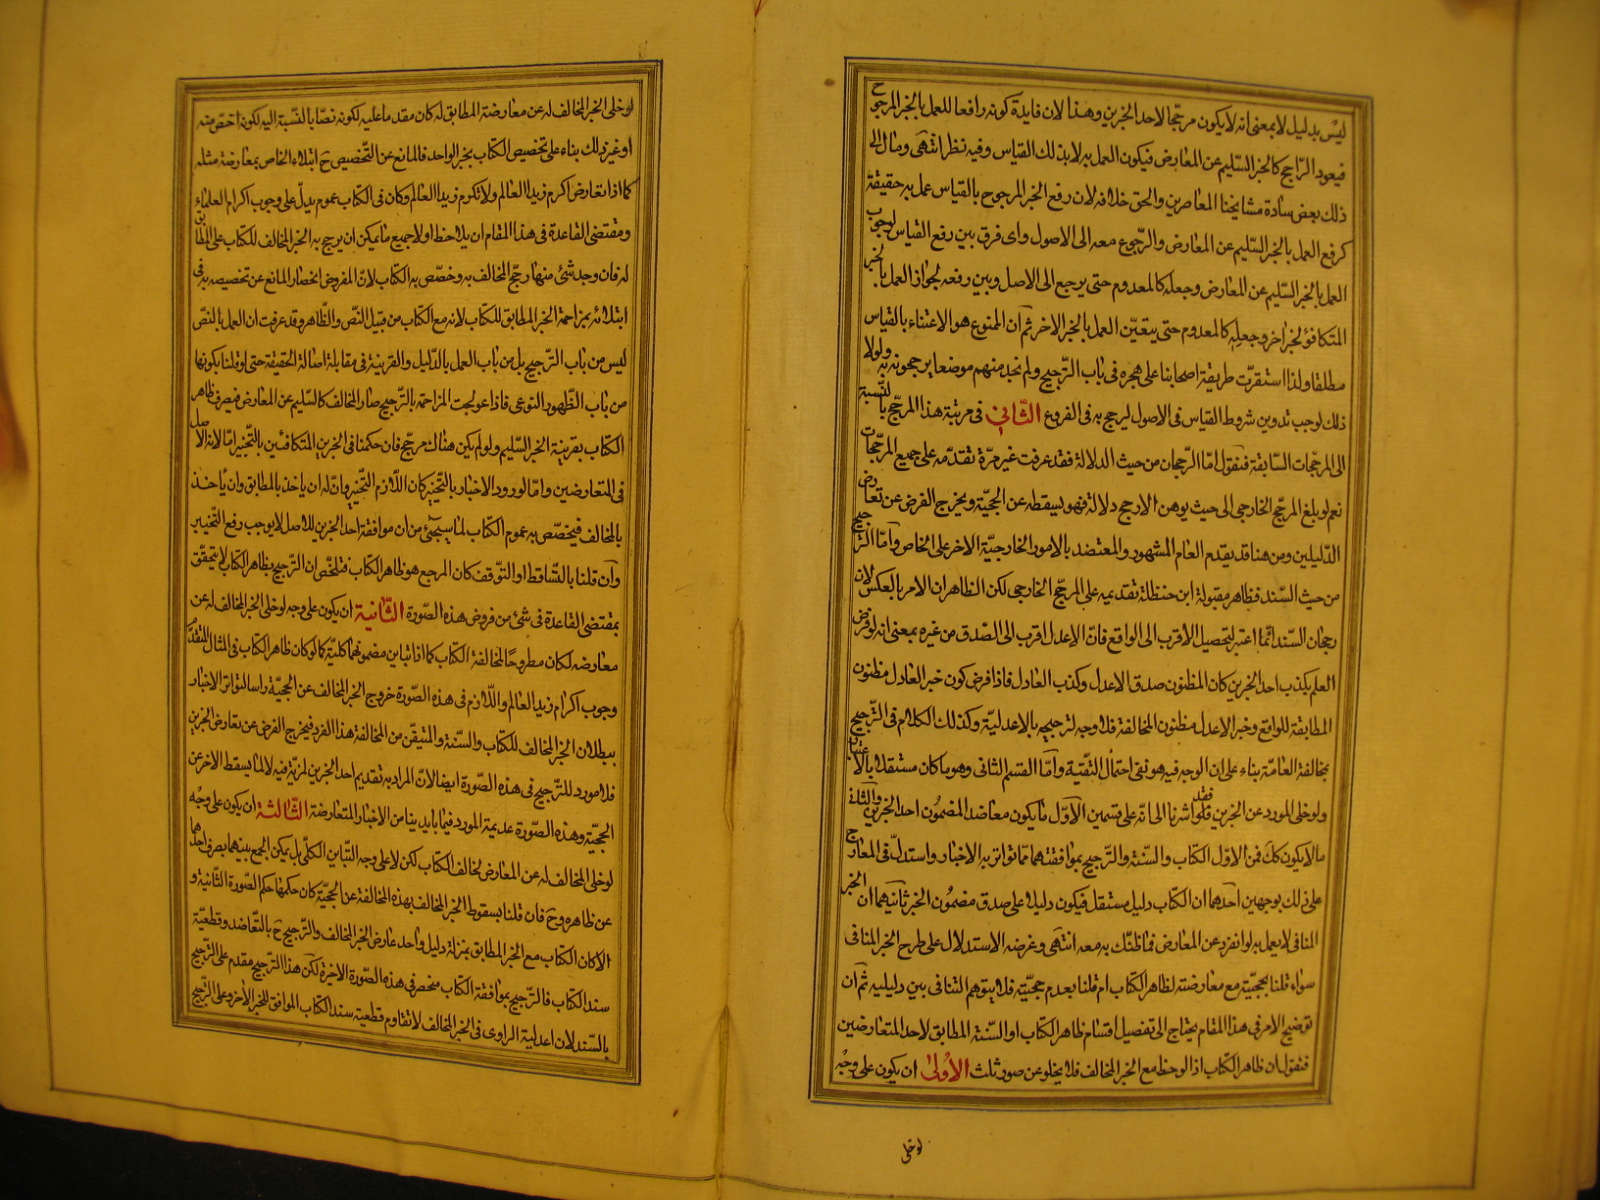 ليس بدليل لا بمعنى انه لا يكون مرجحا لاحد الخبرين وهذا لان فايدة كونه رافعا للعمل بالخبر المرجوح
فيعود الراجح كالخبر السليم عن المعارض فيكون العمل به لا بذلك القياس وفيه نظر انتهى ومال الى
ذلك بعض سادة مشايخنا المعاصرين والحق خلافه لان رفع الخبر المرجوح بالقياس عمل به حقيقة
كرفع العمل بالخبر السليم عن المعارض والرجوع معه الى الاصول واى فرق بين رفع القياس لوجوب
العمل بالخبر السليم عن المعارض وجعله كالمعدوم حتى يرجع الى الاصل وبين رفعه لجواز العمل بالخبر
المتكافؤ لخبر اخر وجعله كالمعدوم حتى يتعين العمل بالخبر الاخر ثم ان الممنوع هو الاعتناء بالقياس
مطلقا ولذا استقرت طريقة اصحابنا على هجره فى باب الترجيح ولم نجد منهم موضعا يرجحونه به ولولا
ذلك لوجب تدوين شروط القياس فى الاصول ليرجح به فى الفروع الثانى فى مرتبة هذا المرجح بالنسبة
الى المرجحات السابقة فنقول اما الرجحان من حيث الدلالة فقد عرفت غير مرة تقدمه على جميع المرجحات
نعم لو بلغ المرجح الخارجى الى حيث يوهن الارجح دلالة فهو يسقطه عن الحجية ويخرج الفرض عن تعارض
الدليلين ومن هنا قد يقدم العام المشهور والمعتضد بالامور الخارجية الاخر على الخاص واما الترجيح
من حيث السند فظاهر مقبولة ابن حنظلة تقديمه على المرجح الخارجى لكن الظاهر ان الامر بالعكس لان
رجحان السند انما اعتبر لتحصيل الاقرب الى الواقع فان الاعدل اقرب الى الصدق من غيره بمعنى انه لو فرض
العلم بكذب احد الخبرين كان المظنون صدق الاعدل وكذب العادل فاذا فرض كون خبر العادل مظنون
المطابقة للواقع وخبر الاعدل مظنون المخالفة فلا وجه لترجيحه بالاعدلية وكذلك الكلام فى الترجيح
بمخالفة العامة بناء على ان الوجه فيه هو نفى احتمال التقية واما القسم الثانى وهو ما كان مستقلا بالاعتبار
ولو خلى المورد عن الخبرين فقد اشرنا الى انه على قسمين الاول ما يكون معاضد المضمون احد الخبرين والثانى
ما لا يكون كك فمن الاول الكتاب والسنة والترجيح بموافقتهما مما تواتر به الاخبار واستدل فى المعارج
على ذلك بوجهين احدهما ان الكتاب دليل مستقل فيكون دليلا على صدق مضمون الخبر ثانيهما ان الخبر
المنافى لا يعمل به لو انفرد عن المعارض فما ظنك به معه انتهى وغرضه الاستدلال على طرح الخبر المنافى
سواء قلنا بحجيته مع معارضته لظاهر الكتاب ام قلنا بعدم حجيته فلا يتوهم التنافى بين دليليه ثم ان
توضيح الامر فى هذا المقام يحتاج الى تفصيل اقسام ظاهر الكتاب او السنة المطابق لاحد المتعارضين
فنقول ان ظاهر الكتاب اذا لوحظ مع الخبر المخالف فلا يخلو عن صور ثلث الاولى ان يكون على وجه
لو خلى
لو خلى الخبر المخالف له عن معارضة المطابق له كان مقدما عليه لكونه نصا بالنسبة اليه لكونه اخص منه
او غير ذلك بناء على تخصيص الكتاب بخبر الواحد فالمانع عن التخصيص ح ابتلاء الخاص بمعارضة مثله
كما اذا تعارض اكرم زيدا العالم ولا تكرم زيدا العالم وكان فى الكتاب عموم يدل على وجوب اكرام العلماء
ومقتضى القاعدة فى هذا المقام ان يلاحظ اولا جميع ما يمكن ان يرجح به الخبر المخالف للكتاب على المطابق
له فان وجد شئ منها رجح المخالف به وخصص به الكتاب لان المفروض انحصار المانع عن تخصيصه به فى
ابتلائه بمزاحمة الخبر المطابق للكتاب لانه مع الكتاب من قبيل النص والظاهر وقد عرفت ان العمل بالنص
ليس من باب الترجيح بل من باب العمل بالدليل والقرينة فى مقابلة اصالة الحقيقة حتى لو قلنا بكونها
من باب الظهور النوعى فاذا عولجت المزاحمة بالترجيح صار المخالف كالسليم عن المعارض فيصرف ظاهر
الكتاب بقرينة الخبر السليم ولو لم يكن هناك مرجح فان حكمنا فى الخبرين المتكافئين بالتخيير اما لانه الاصل
فى المتعارضين واما لورود الاخبار بالتخيير كان اللازم التخيير وان له ان ياخذ بالمطابق وان ياخذ
بالمخالف فيخصص به عموم الكتاب لما سيجئ من ان موافقة احد الخبرين للاصل لا يوجب رفع التخيير
وان قلنا بالتساقط او التوقف كان المرجع هو ظاهر الكتاب فتلخص ان الترجيح بظاهر الكتاب لا يتحقق
بمقتضى القاعدة فى شئ من فروض هذه الصورة الثانية ان يكون على وجه لو خلى الخبر المخالف له عن
معارضه لكان مطروحا لمخالفة الكتاب كما اذا تباين مضمونهما كلية كما لو كان ظاهر الكتاب فى المثال المتقدم
وجوب اكرام زيد العالم واللازم فى هذه الصورة خروج الخبر المخالف عن الحجية راسا لتواتر الاخبار
ببطلان الخبر المخالف للكتاب والسنة والمتيقن من المخالفة هذا الفرد فيخرج الفرض عن تعارض الخبرين
فلا مورد للترجيح فى هذه الصورة ايضا لان المراد به تقديم احد الخبرين لمزية فيه لا لما يسقط الاخر عن
الحجية وهذه الصورة عديمة المورد فيما بايدينا من الاخبار المتعارضة الثالثة ان يكون على وجه
لو خلى المخالف له عن المعارض لخالف الكتاب لكن لا على وجه التباين الكلى بل يمكن الجمع بينهما بصرف احدهما
عن ظاهره وح فان قلنا بسقوط الخبر المخالف بهذه المخالفة عن الحجية كان حكمها حكم الصورة الثانية و
الا كان الكتاب مع الخبر المطابق بمنزلة دليل واحد عارض الخبر المخالف والترجيح ح بالتعاضد وقطعية
سند الكتاب فالترجيح بموافقة الكتاب منحصر فى هذه الصورة الاخيرة لكن هذا الترجيح مقدم على الترجيح
بالسند لان اعدلية الراوى فى الخبر المخالف لا تقاوم قطعية سند الكتاب الموافق للخبر الاخر وعلى الترجيح